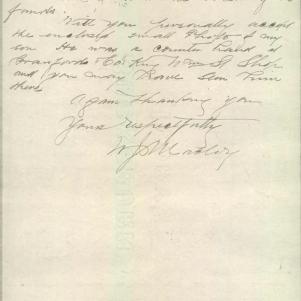 funds.
Will you personally accept
the enclosed small Photo of my
son He was a counter hand at
Cor King Wm St Shop
and you may have seen him
there
Again thanking you
Yours respectfully
W J